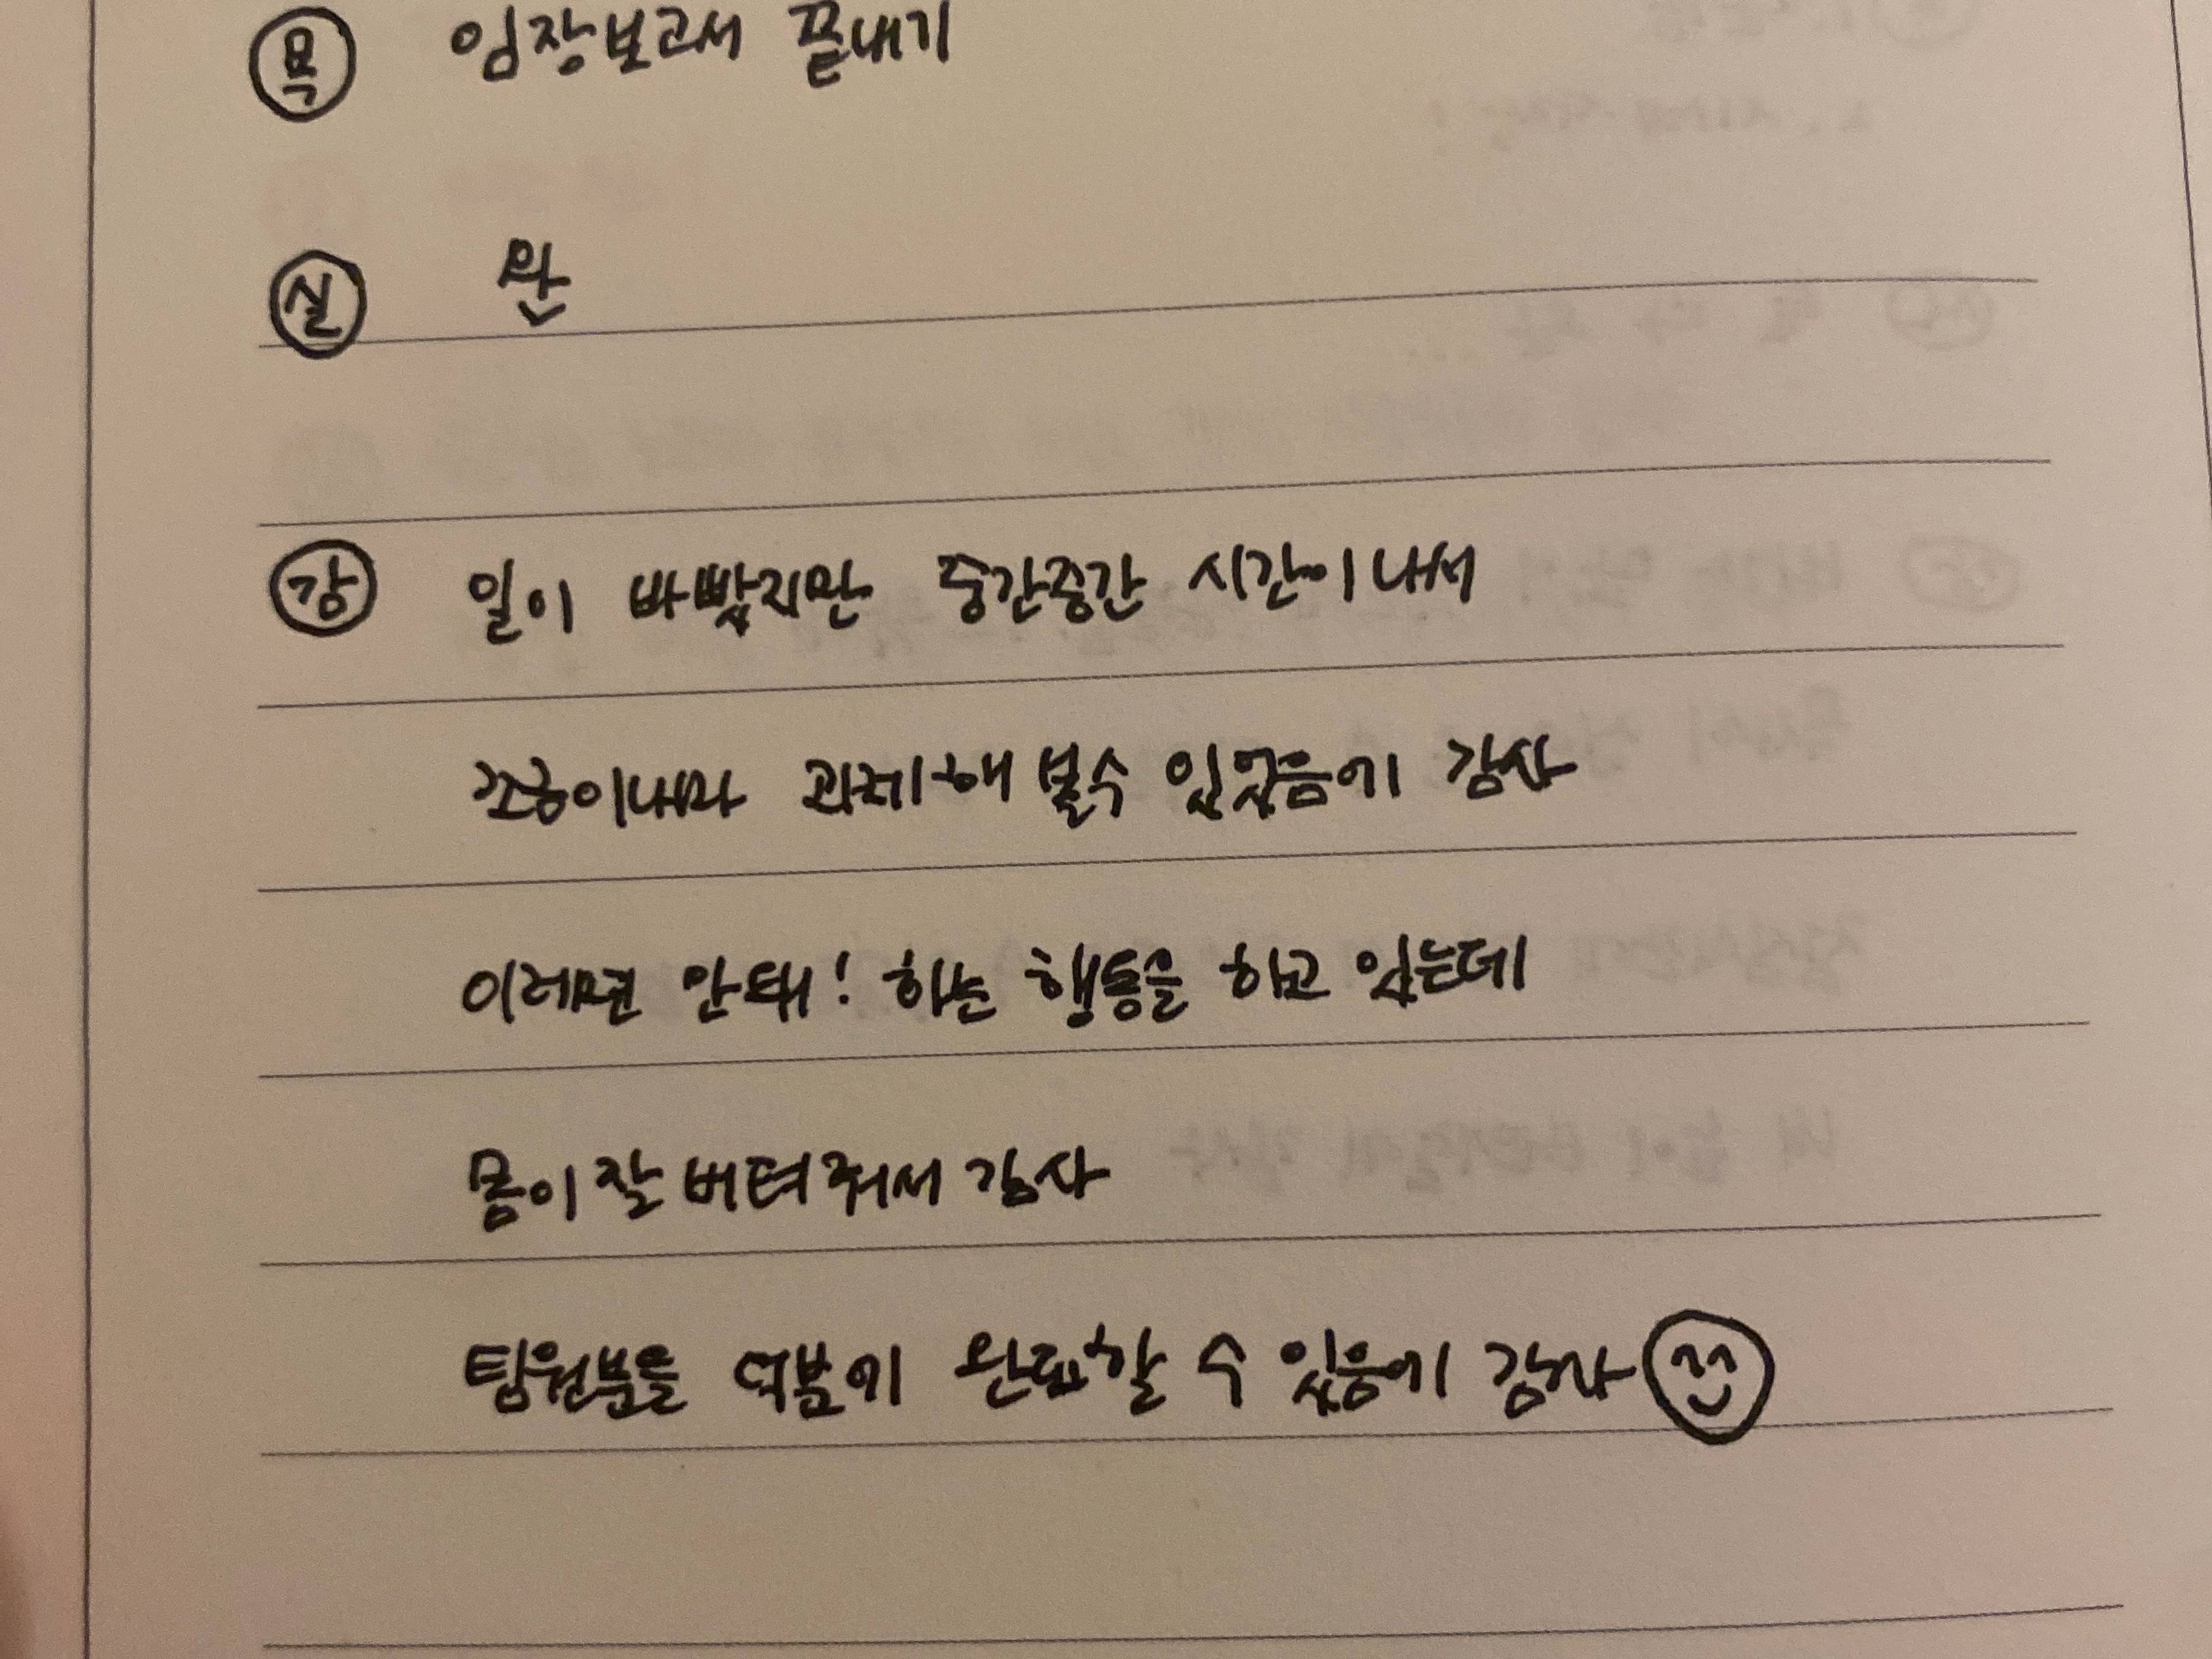 목 임장보고서 끝내기
실 완
감 일이 바빴지만 중간중간 시간이 나서
조금이나마 과제해 볼수 있었음에 감사
이러면 안돼! 하는 행동을 하고 있는데
몸이 잘 버텨줘서 감사
팀원분들 덕분에 완료할 수 있음에 감사